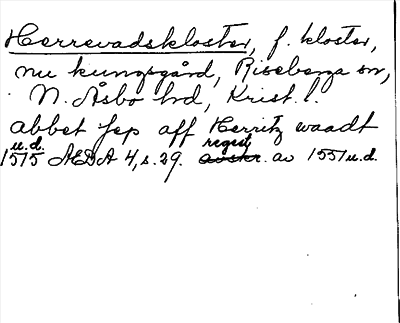 Herrevadskloster, f. kloster,
nu kungsgård, Riseberga sn,
N. Åsbo hd, Krist. l.
abbet Jep aff Herritz waadt
u.d. regest
1575 ÆDA 4, s. 29. avskr. av 1551 u.d.